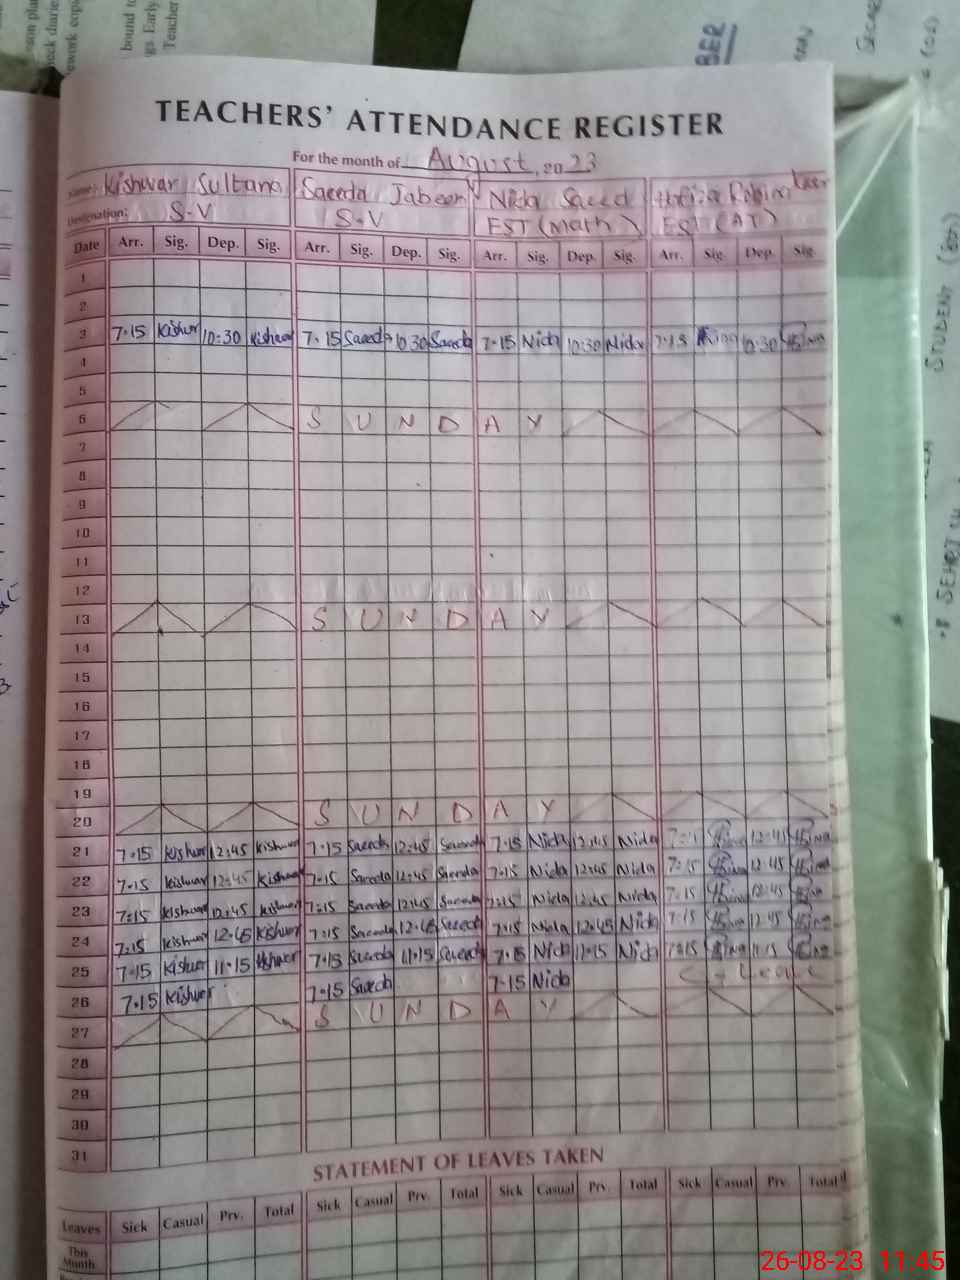 TEACHERS' ATTENDANCE REGISTER
For the month of August, 2023
Name: Kishwar Sultana Saeeda Jabeen Nida Saeed
Designation: S.V S.V EST (Math) EST (AT)
Date Arr. Sig. Dep. Sig. Arr. Sig. Dep. Sig. Arr. Sig. Dep. Sig. Arr. Sig. Dep. Sig.
1
2
3 7.15 Kishwar 10:30 Kishwar 7.15 Saeeda 10:30 Saeeda 7.15 Nida 10:30 Nida 7.15 10:30
4
5
6 S U N D A Y
7
8
9
10
11
12
13 S U N D A Y
14
15
16
17
18
19
20 S U N D A Y
21 7.15 Kishwar 12:45 Kishwar 7.15 Saeeda 12:45 Saeeda 7.15 Nida 12:45 Nida 12:45
22 7.15 Kishwar 12:45 Kishwar 7.15 Saeeda 12:45 Saeeda 7.15 Nida 12:45 Nida 7.15 12:45
23 7.15 Kishwar 12:45 Kishwar 7.15 Saeeda 12:45 Saeeda 7.15 Nida 12:45 Nida 7.15 12:45
24 7.15 Kishwar 12.45 Kishwar 7.15 Saeeda 12.45 Saeeda 7.15 Nida 12.45 Nida 7.15 12.45
25 7.15 Kishwar 11.15 Kishwar 7.15 Saeeda 11.15 Saeeda 7.15 Nida 11.15 Nida 7.15 11.15
26 7.15 Kishwar 7.15 Saeeda 7.15 Nida Leave
27 S U N D A Y
28
29
30
31
STATEMENT OF LEAVES TAKEN
Leaves Sick Casual Prv. Total Sick Casual Prv. Total Sick Casual Prv. Total Sick Casual Prv. Total
This Month
26-08-23 11:45